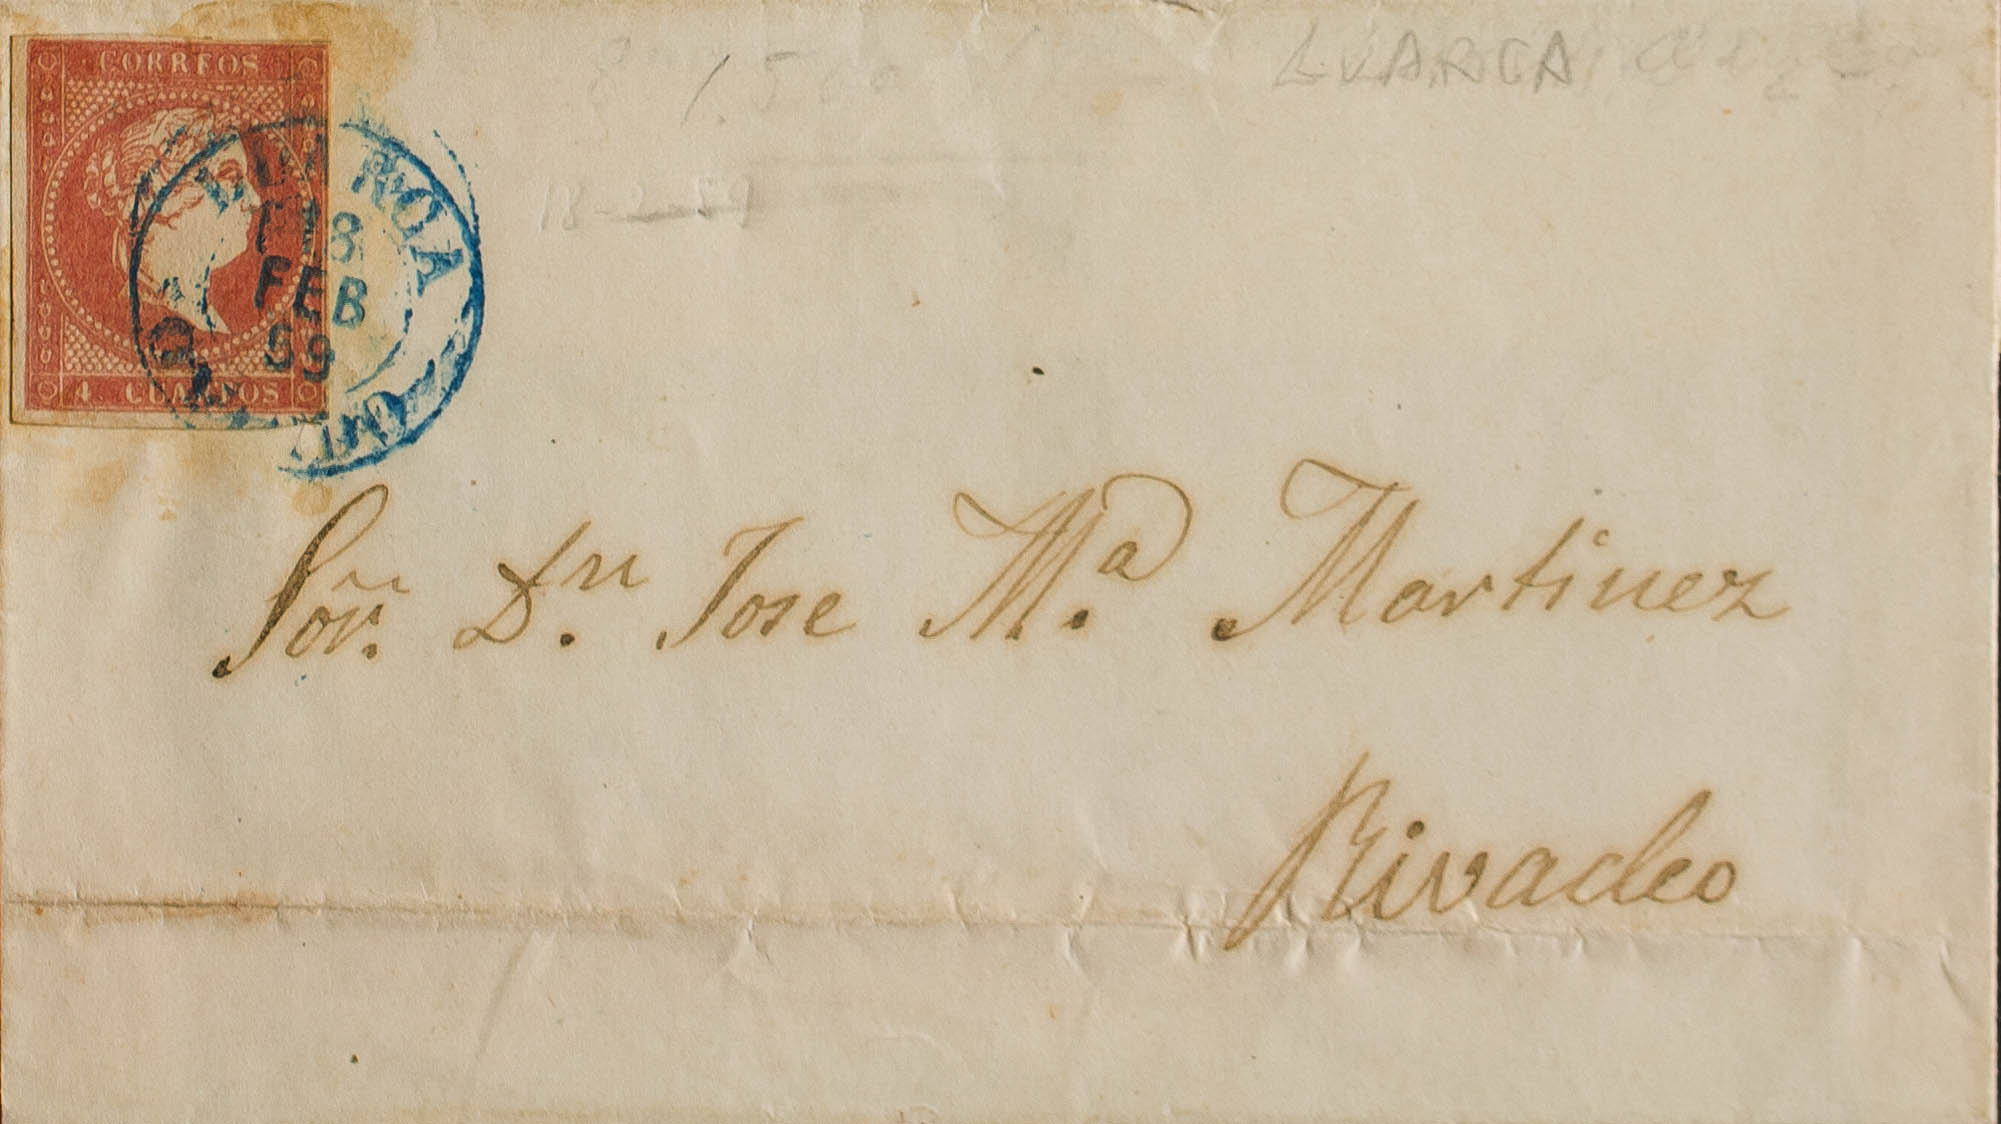 CORREOS
4 CUARTOS
LUARCA
18
FEB
59
LUARCA
18-2-59
Sor. Dn. Jose Ma. Martinez
Rivadeo